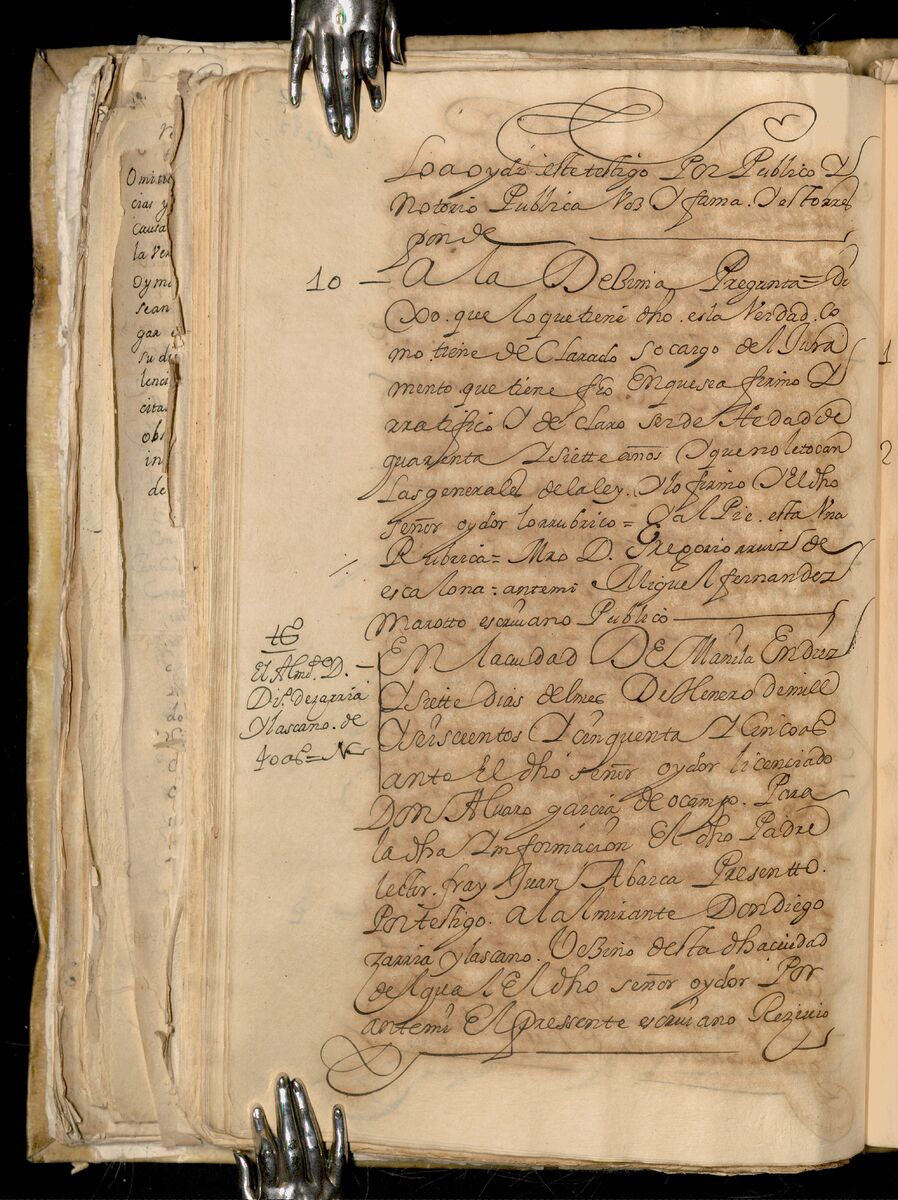 Omitie
cias y
Causa
la Ver
Oyme
sean
gar
su di
lenci
cita
obs
in
de
Lo a oydo este testigo Por Publico Y
Notorio Publica Voz Y fama. Y esto rres
ponde
10 – A la Debima Pregunta = di
xo. que lo que tiene dho. es la Verdad. Co
mo. tiene de Clarado so cargo del Jura
mento. que tiene fho En que se a firmo Y
rratifico Y de claro ser de Hedad de
quarenta Y siette años Y que no le tocan
Las generales de la ley. Y lo firmo Y El dho
señor oydor lo rrubrico = Y al Pie. esta Vna
Rubrica = Mro D. Gregorio rruiz de
escalona: ante mi Miguel fernandez
Marotto escriuano Publico
tº
El Almte. D.
Dio. de zarria
Y lascano. de
40 as =
En la ciudad De Manila En diez
Y siette dias del mes De Henero de mill
Y seiscientos Y cinquenta Y Cinco as
ante El dho señor oydor licenciado
Don Albaro garcia de ocampo. Para
la dha Ynformacion El dho Padre
lector. fray Juan Abarca Presentto.
Por testigo. a la lmirante Don diego
zarria y lascano. Vebino desta dha ciudad
del qual El dho señor oydor Por
ante mi El pressente escriuano Reziuio
1
2